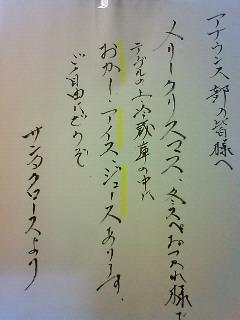 アナウンス部の皆様へ
メリークリスマス、冬スペおつかれ様で
テーブルの上・冷蔵庫の中に
おかし・アイス・ジュースあります、
ご自由にどうぞ
サンタクロースより